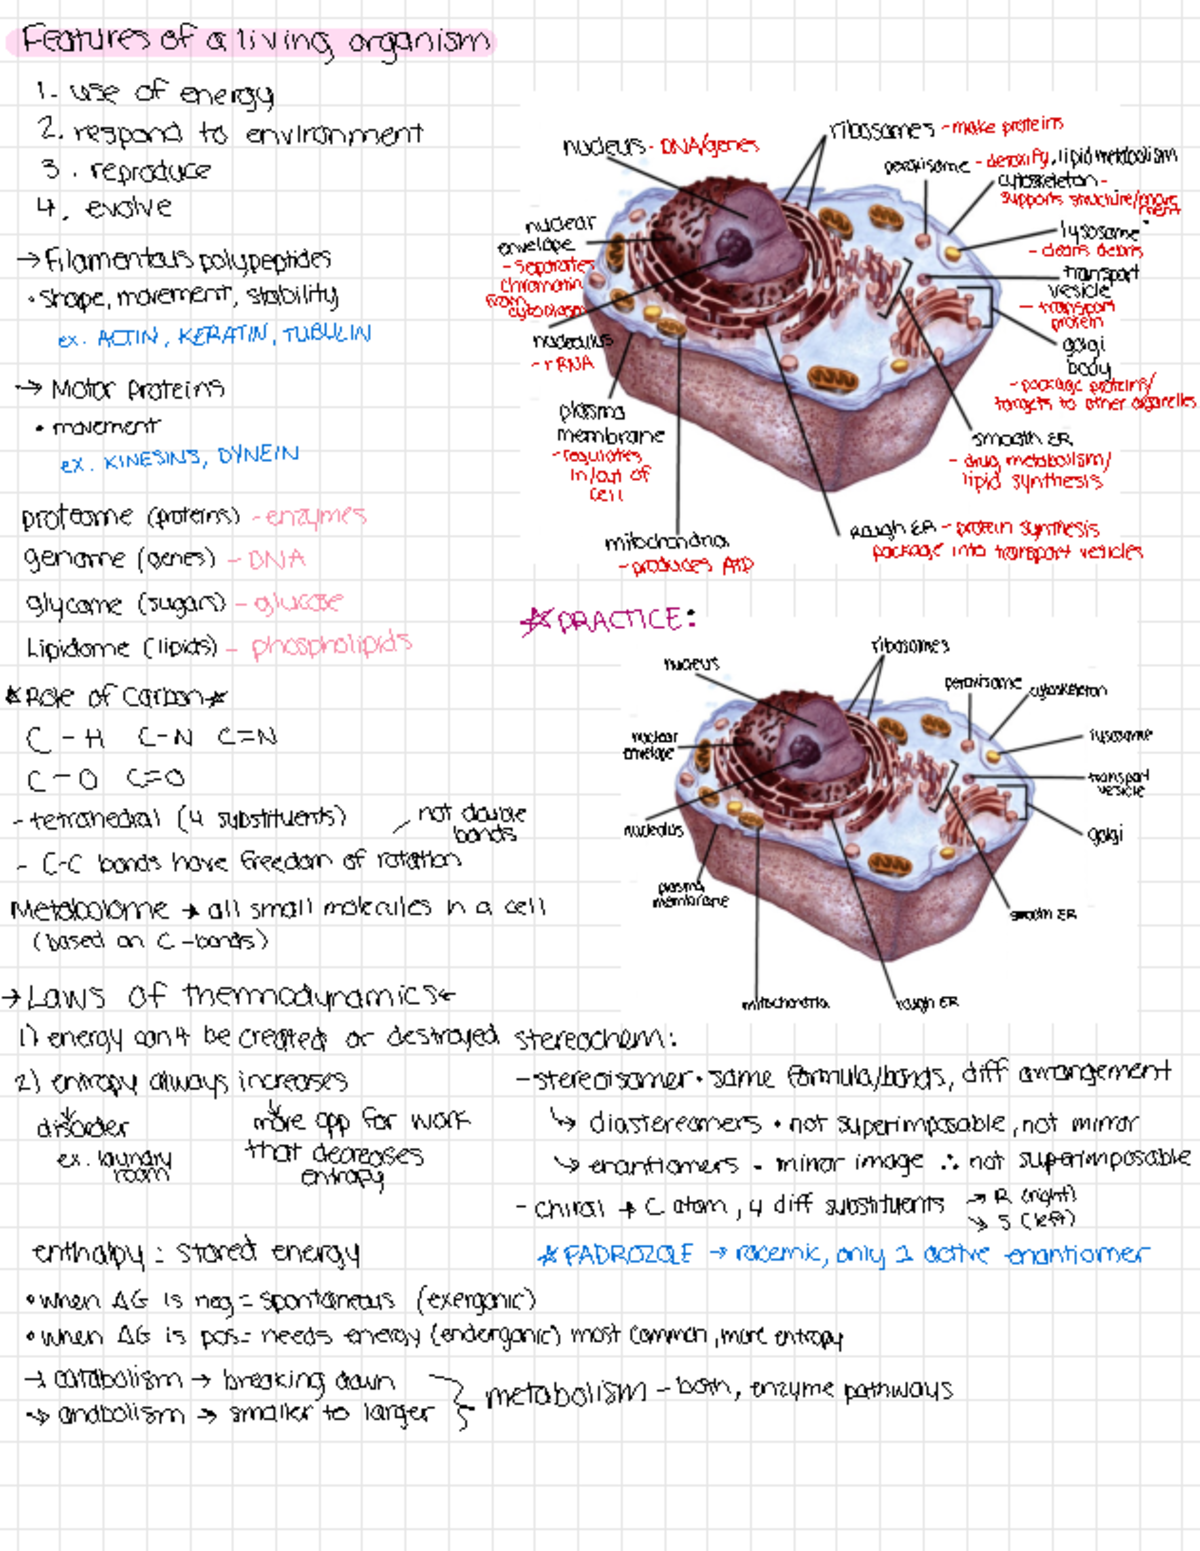 Features of a living organism
1. use of energy
2. respond to environment
3. reproduce
4. evolve
→ Filamentous polypeptides
• shape, movement, stability
ex. ACTIN, KERATIN, TUBULIN
→ Motor Proteins
• movement
ex. KINESINS, DYNEIN
proteome (proteins) - enzymes
genome (genes) - DNA
glycome (sugars) - glucose
Lipidome (lipids) - phospholipids
nucleus - DNA/genes
ribosomes - make proteins
peroxisome - detoxify, lipid metabolism
cytoskeleton -
supports structure/move
ment
lysosome
- cleans debris
transport
vesicle
- transport
protein
golgi
body
- package proteins/
targets to other organelles
smooth ER
- drug metabolism/
lipid synthesis
rough ER - protein synthesis
package into transport vesicles
mitochondria
- produces ATP
plasma
membrane
- regulates
in/out of
cell
nucleolus
- rRNA
nuclear
envelope
- separates
chromatin
from
cytoplasm
☆ PRACTICE:
nucleus
ribosomes
peroxisome
cytoskeleton
lysosome
transport
vesicle
golgi
smooth ER
rough ER
mitochondria
plasma
membrane
nucleolus
nuclear
envelope
☆ Role of Carbon ☆
C - H C-N C=N
C - O C=O
- tetrahedral (4 substituents)
not double
bonds
- C-C bonds have freedom of rotation
Metabolome → all small molecules in a cell
(based on C-bonds)
→ Laws of thermodynamics ←
1) energy can't be created or destroyed
2) entropy always increases
disorder
ex. laundry
room
more opp for work
that decreases
entropy
stereochem:
- stereoisomer • same formula/bonds, diff arrangement
↳ diastereomers • not superimposable, not mirror
↳ enantiomers - mirror image ∴ not superimposable
- chiral → C atom, 4 diff substituents → R (right)
↘ S (left)
☆ FADROZOLE → racemic, only 1 active enantiomer
enthalpy = stored energy
• when ΔG is neg = spontaneous (exergonic)
• when ΔG is pos = needs energy (endergonic) most common, more entropy
→ catabolism → breaking down
→ anabolism → smaller to larger
metabolism - both, enzyme pathways